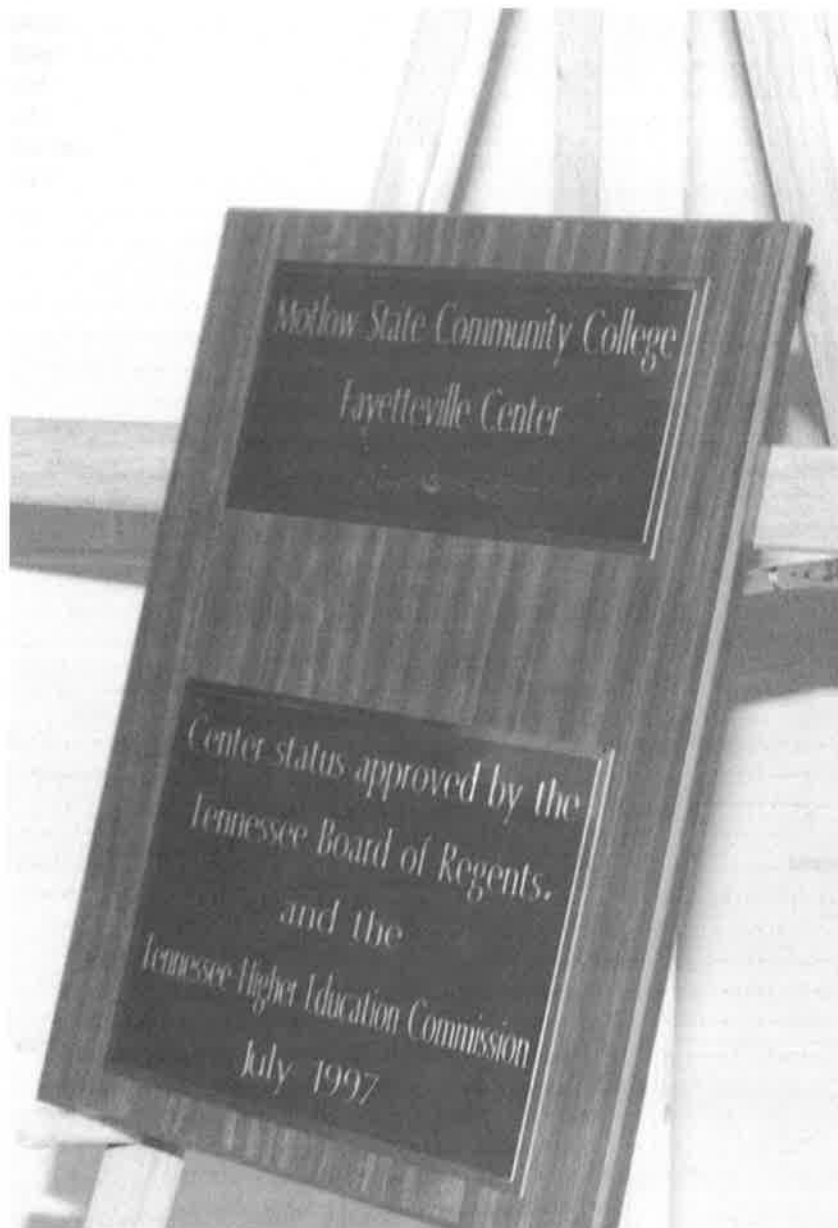 Motlow State Community College
Fayetteville Center
Center status approved by the
Tennessee Board of Regents,
and the
Tennessee Higher Education Commission
July 1997